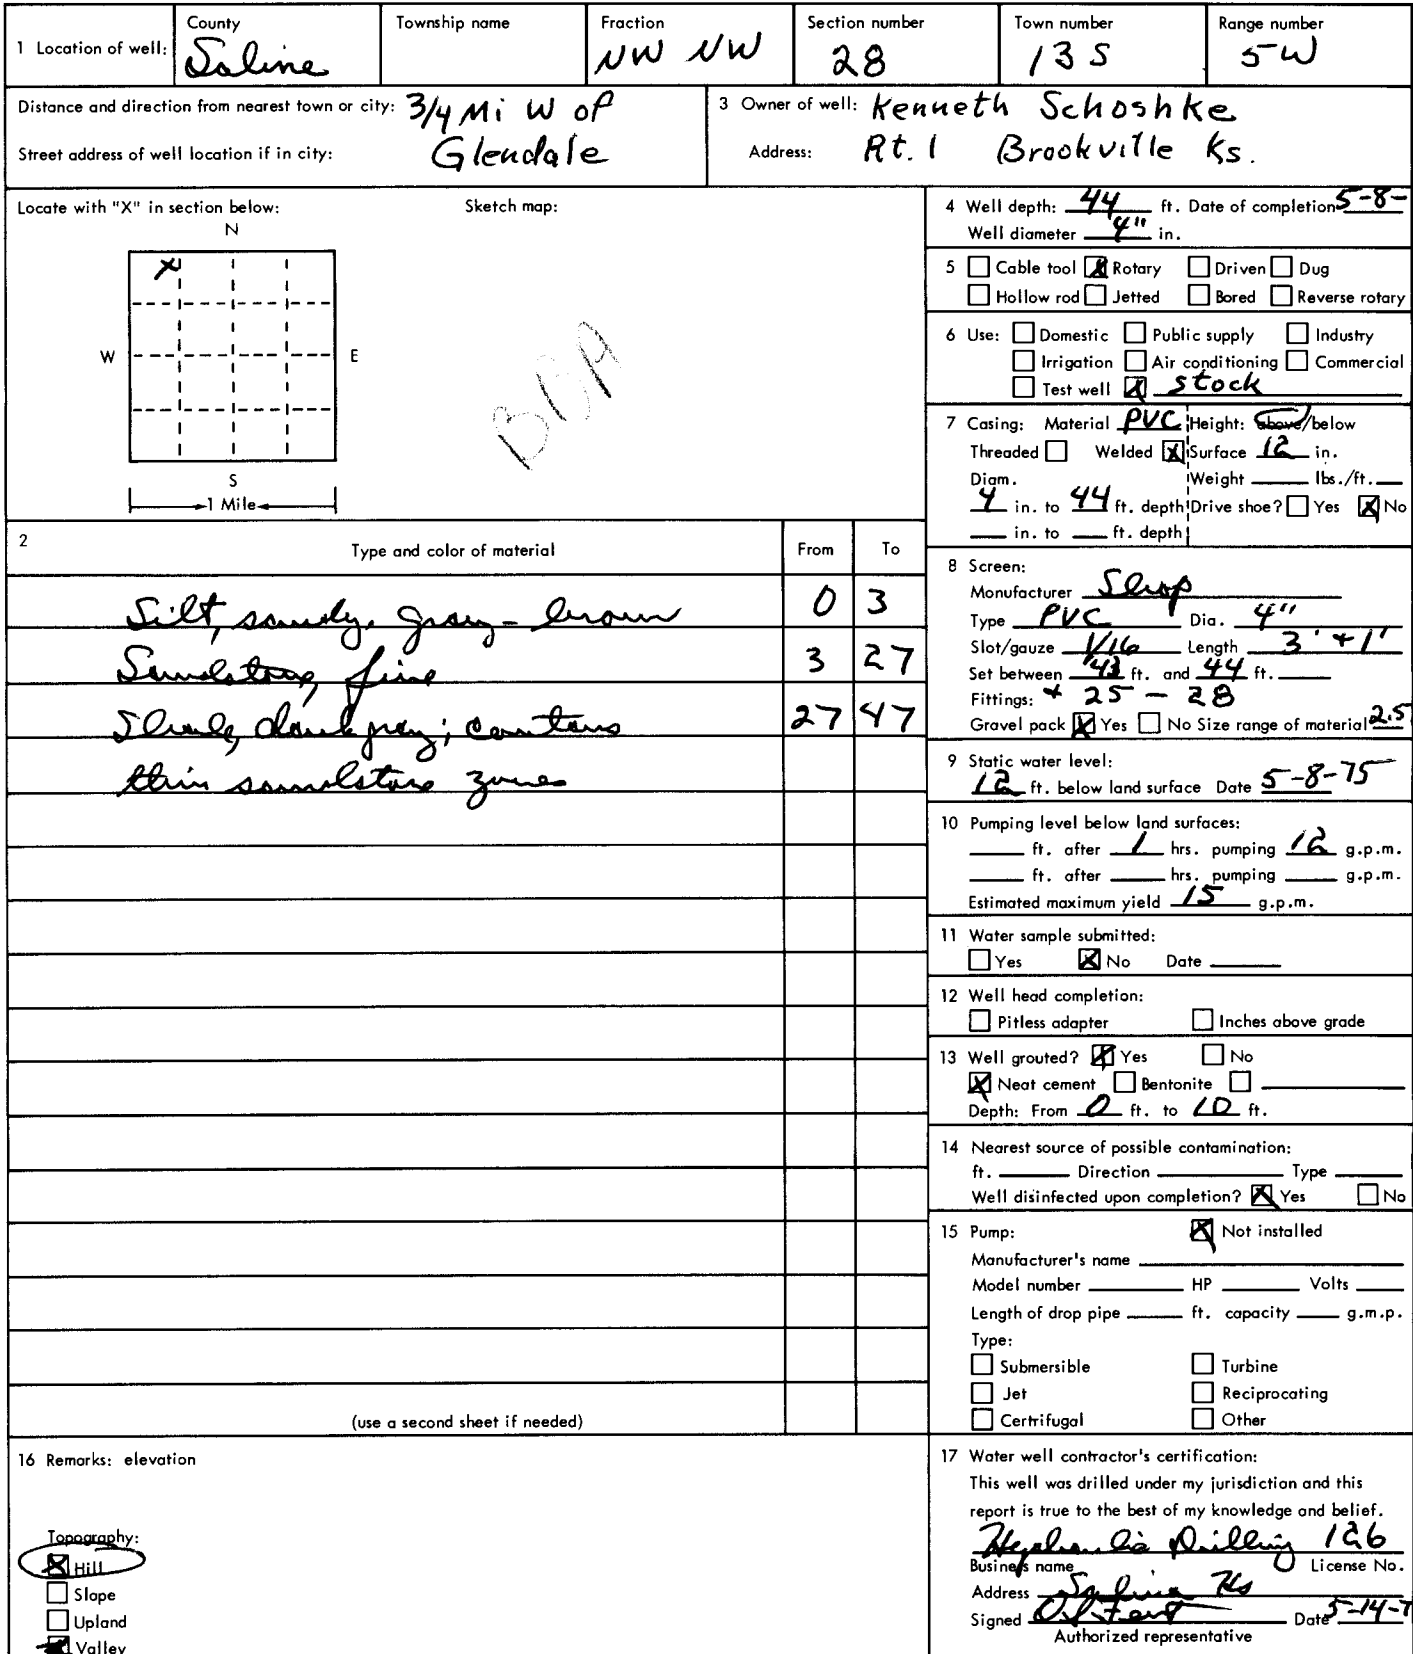 1 Location of well:
County
Saline
Township name
Fraction
NW NW
Section number
28
Town number
13 S
Range number
5 W
Distance and direction from nearest town or city: 3/4 Mi W of
Glendale
Street address of well location if in city:
3 Owner of well: Kenneth Schoshke
Address: Rt. 1 Brookville Ks.
Locate with "X" in section below:
Sketch map:
N
X
W
E
S
1 Mile
2
Type and color of material
From
To
Silt, sandy, gray-brown 0 3
Sandstone, fine 3 27
Shale, dark gray; contains 27 47
thin sandstone zones
(use a second sheet if needed)
16 Remarks: elevation
Topography:
Hill
Slope
Upland
Valley
4 Well depth: 44 ft. Date of completion 5-8-
Well diameter 4" in.
5 Cable tool X Rotary Driven Dug
Hollow rod Jetted Bored Reverse rotary
6 Use: Domestic Public supply Industry
Irrigation Air conditioning Commercial
Test well X stock
7 Casing: Material PVC Height: above/below
Threaded Welded X Surface 12 in.
Diam. Weight lbs./ft.
4 in. to 44 ft. depth Drive shoe? Yes X No
in. to ft. depth
8 Screen:
Manufacturer Shop
Type PVC Dia. 4"
Slot/gauze 1/16 Length 3' + 1'
Set between 43 ft. and 44 ft.
Fittings: + 25 - 28
Gravel pack X Yes No Size range of material 2.5
9 Static water level:
12 ft. below land surface Date 5-8-75
10 Pumping level below land surfaces:
ft. after 1 hrs. pumping 12 g.p.m.
ft. after hrs. pumping g.p.m.
Estimated maximum yield 15 g.p.m.
11 Water sample submitted:
Yes X No Date
12 Well head completion:
Pitless adapter Inches above grade
13 Well grouted? X Yes No
X Neat cement Bentonite
Depth: From 0 ft. to 10 ft.
14 Nearest source of possible contamination:
ft. Direction Type
Well disinfected upon completion? X Yes No
15 Pump: X Not installed
Manufacturer's name
Model number HP Volts
Length of drop pipe ft. capacity g.m.p.
Type:
Submersible Turbine
Jet Reciprocating
Certrifugal Other
17 Water well contractor's certification:
This well was drilled under my jurisdiction and this
report is true to the best of my knowledge and belief.
Drilling 126
Business name License No.
Address Salina Ks
Signed Date 5-14-7
Authorized representative